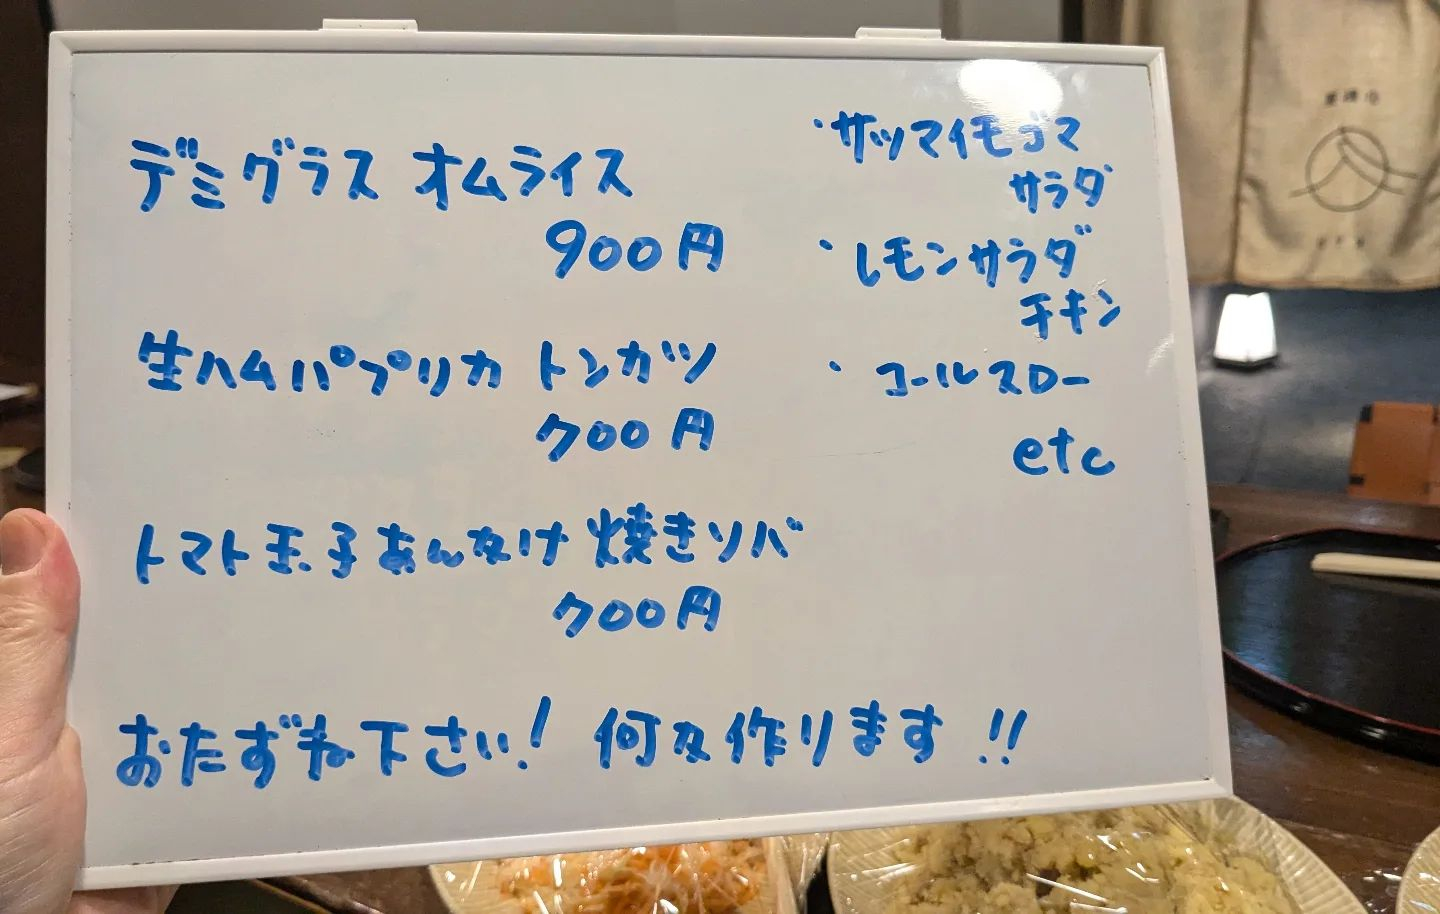 デミグラス オムライス
900円
生ハムパプリカ トンカツ
700円
トマト玉子あんかけ 焼きソバ
700円
おたずね下さい! 何か作ります!!
・サツマイモゴマ
サラダ
・レモンサラダ
チキン
・コールスロー
etc